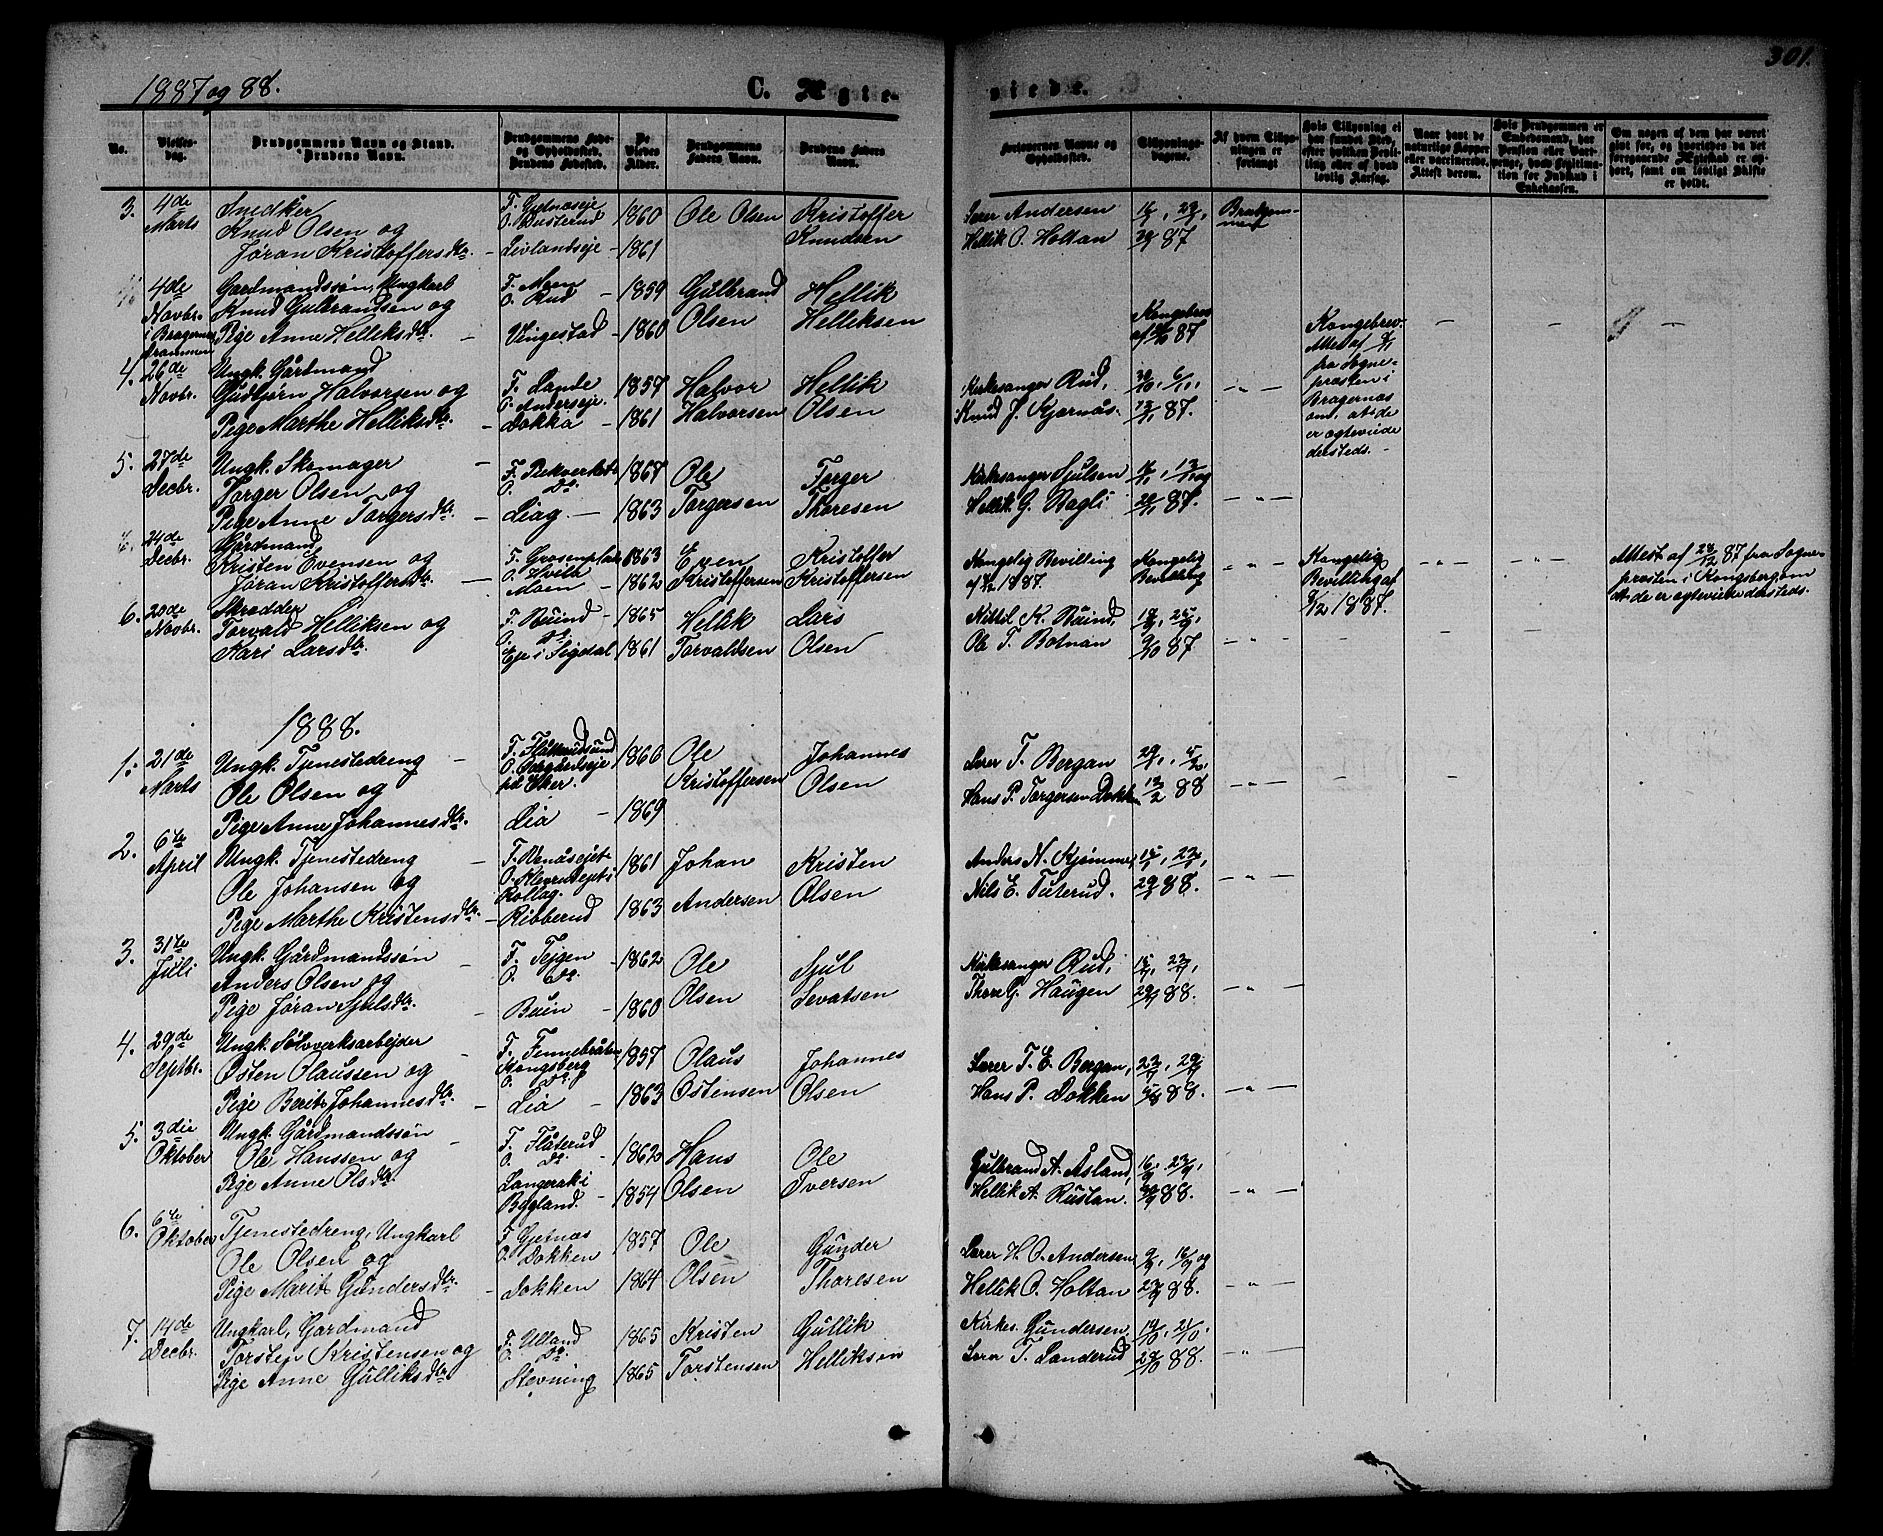 1887 og 88.
C. Ægte-
viede.
301.
No.
Vielses-
dag.
Brudgommens Navn og Stand.
Brudens Navn.
Brudgommens Føde-
og Opholdssted.
Brudens Fødested.
De
Viedes
Alder.
Brudgommens
Faders Navn.
Brudens Faders
Navn.
Forlovernes Navne og
Opholdssted.
Tillysnings-
dagene.
Af hvem Tillys-
ningen er
forlangt
Hvis Tillysning ei
har fundet Sted,
efter hvilken Bevil-
ling eller af hvad
lovlig Aarsag.
Naar havt de
naturlige Kopper
eller vaccinerede.
Attest derom.
Hvis Brudgommen er
Enkemand, har
Pension eller Vær-
penge, hvad Legitima-
tion for Indskud i
Enkekassen.
Om nogen af dem har været
gift før, og hvorledes da det
foregaaende Ægteskab er op-
hørt, samt om lovligt Skifte
er holdt.
3. 4de Marts
Snedker
Knud Olsen og
Jøran Kristoffersdtr.
F. Gjetnaseje
Livlandseje
1860
1861
Ole Olsen
Kristoffer
Knudsen
Lærer Andersen
Hellik O. Holtan
87
4de Novbr. i Bragernes Drammen
Gardmandssøn, Ungkarl
Knud Gulbrandsen og
Pige Anne Helliksdtr.
F. Moen
O. Rud
Vingestad
1859
1860
Gulbrand
Olsen
Hellik
Helliksen
Kongebrev
87
Kongebrev.
Attest af
fra Sogne-
præsten i
Bragernæs
om, at de
er ægteviede
dersteds.
4. 26de Novbr.
Ungk. Gårdmand
Gudbjørn Halvorsen og
Pige Marthe Helliksdtr.
F. Lande
O. Anderseje
Dokka
1857
1861
Halvor
Halvorsen
Hellik
Olsen
Kirkesanger Rud,
Knud J. Kjørnås.
87.
5. 27de Decbr.
Ungk. Skomager
Torger Olsen og
Pige Anne Torgersdtr.
O. Do.
Liag
1867
1863
Ole
Torgersen
Torger
Thoresen
Kirkesanger Sjulsen
Hellik G. Bagli
87.
24de Decbr.
Gårdmand
Kristen Evensen og
Jøran Kristoffersdtr.
F. Grosenplads
O. Hvila
Moen
1863
1862
Even
Kristoffersen
Kristoffer
Kristoffersen
Kongelig Bevilling
1887.
Kongelig
Bevilling
Kongelig
Bevilling af
1887.
Attest af 28/12 87 fra Sogne-
præsten i Kongsberg om
at de er ægteviede dersteds.
6. 20de Novbr.
Skrædder
Torvald Helliksen og
Kari Larsdtr.
F. Buind
O. Do.
Eje i Sigdal
1865
1861
Hellik
Torvaldsen
Lars
Olsen
Kittil K. Buind,
Ole T. Botnan
87
1888.
1. 21de Marts
Ungk. Tjenestedreng
Ole Olsen og
Pige Anne Johannesdtr.
på Eker.
Lia
1866
1869
Ole
Kristoffersen
Johannes
Olsen
Lærer T. Bergan
Hans P. Torgersen Dokken
88
2. 6te April
Ungk. Tjenestedreng
Ole Johansen og
Pige Marthe Kristensdtr.
Rollag.
Ribberud
1861
1863
Johan
Andersen
Kristen
Olsen
Anders N. Kjømmer,
Nils E. Tuterud.
88.
3. 31te Juli
Ungk. Gårdmandssøn
Anders Olsen og
Pige Jøran Sjulsdtr.
F. Tejgen
O. Do.
Buin
1862
1860
Ole
Olsen
Sjul
Sevatsen
Kirkesanger Rud,
Thore G. Haugen
88.
4. 29de Septbr.
Ungk. Sølvverksarbejder
Østen Olaussen og
Pige Berit Johannesdtr.
F. Fennebråten
Kongsberg
O. Do.
Lia
1857
1863
Olaus
Østensen
Johannes
Olsen
Lærer T. E. Bergan,
Hans P. Dokken
88.
5. 3die Oktober
Ungk. Gårdmandssøn
Ole Hanssen og
Pige Anne Olsdtr.
F. Flåterud
O. Do.
Langerak i
Bygland.
1862
1854
Hans
Olsen
Ole
Iversen
Gulbrand A. Åsland,
Hellik A. Rustan.
88.
6. 6te Oktober
Tjenestedreng, Ungkarl
Ole Olsen og
Pige Marit Gundersdtr.
F. Gjetnas
O. Dokken
Dokken
1857
1864
Ole
Olsen
Gunder
Thoresen
Lærer H. O. Andersen
Hellik O. Holtan
88.
7. 14de Decbr.
Ungkarl, Gardmand
Torstein Kristensen og
Pige Anne Gulliksdtr.
F. Ulland
O. Do.
Stevning
1865
1865
Kristen
Torstensen
Gullik
Helliksen
Kirkes. Gundersen,
Lærer T. Landerud
88.